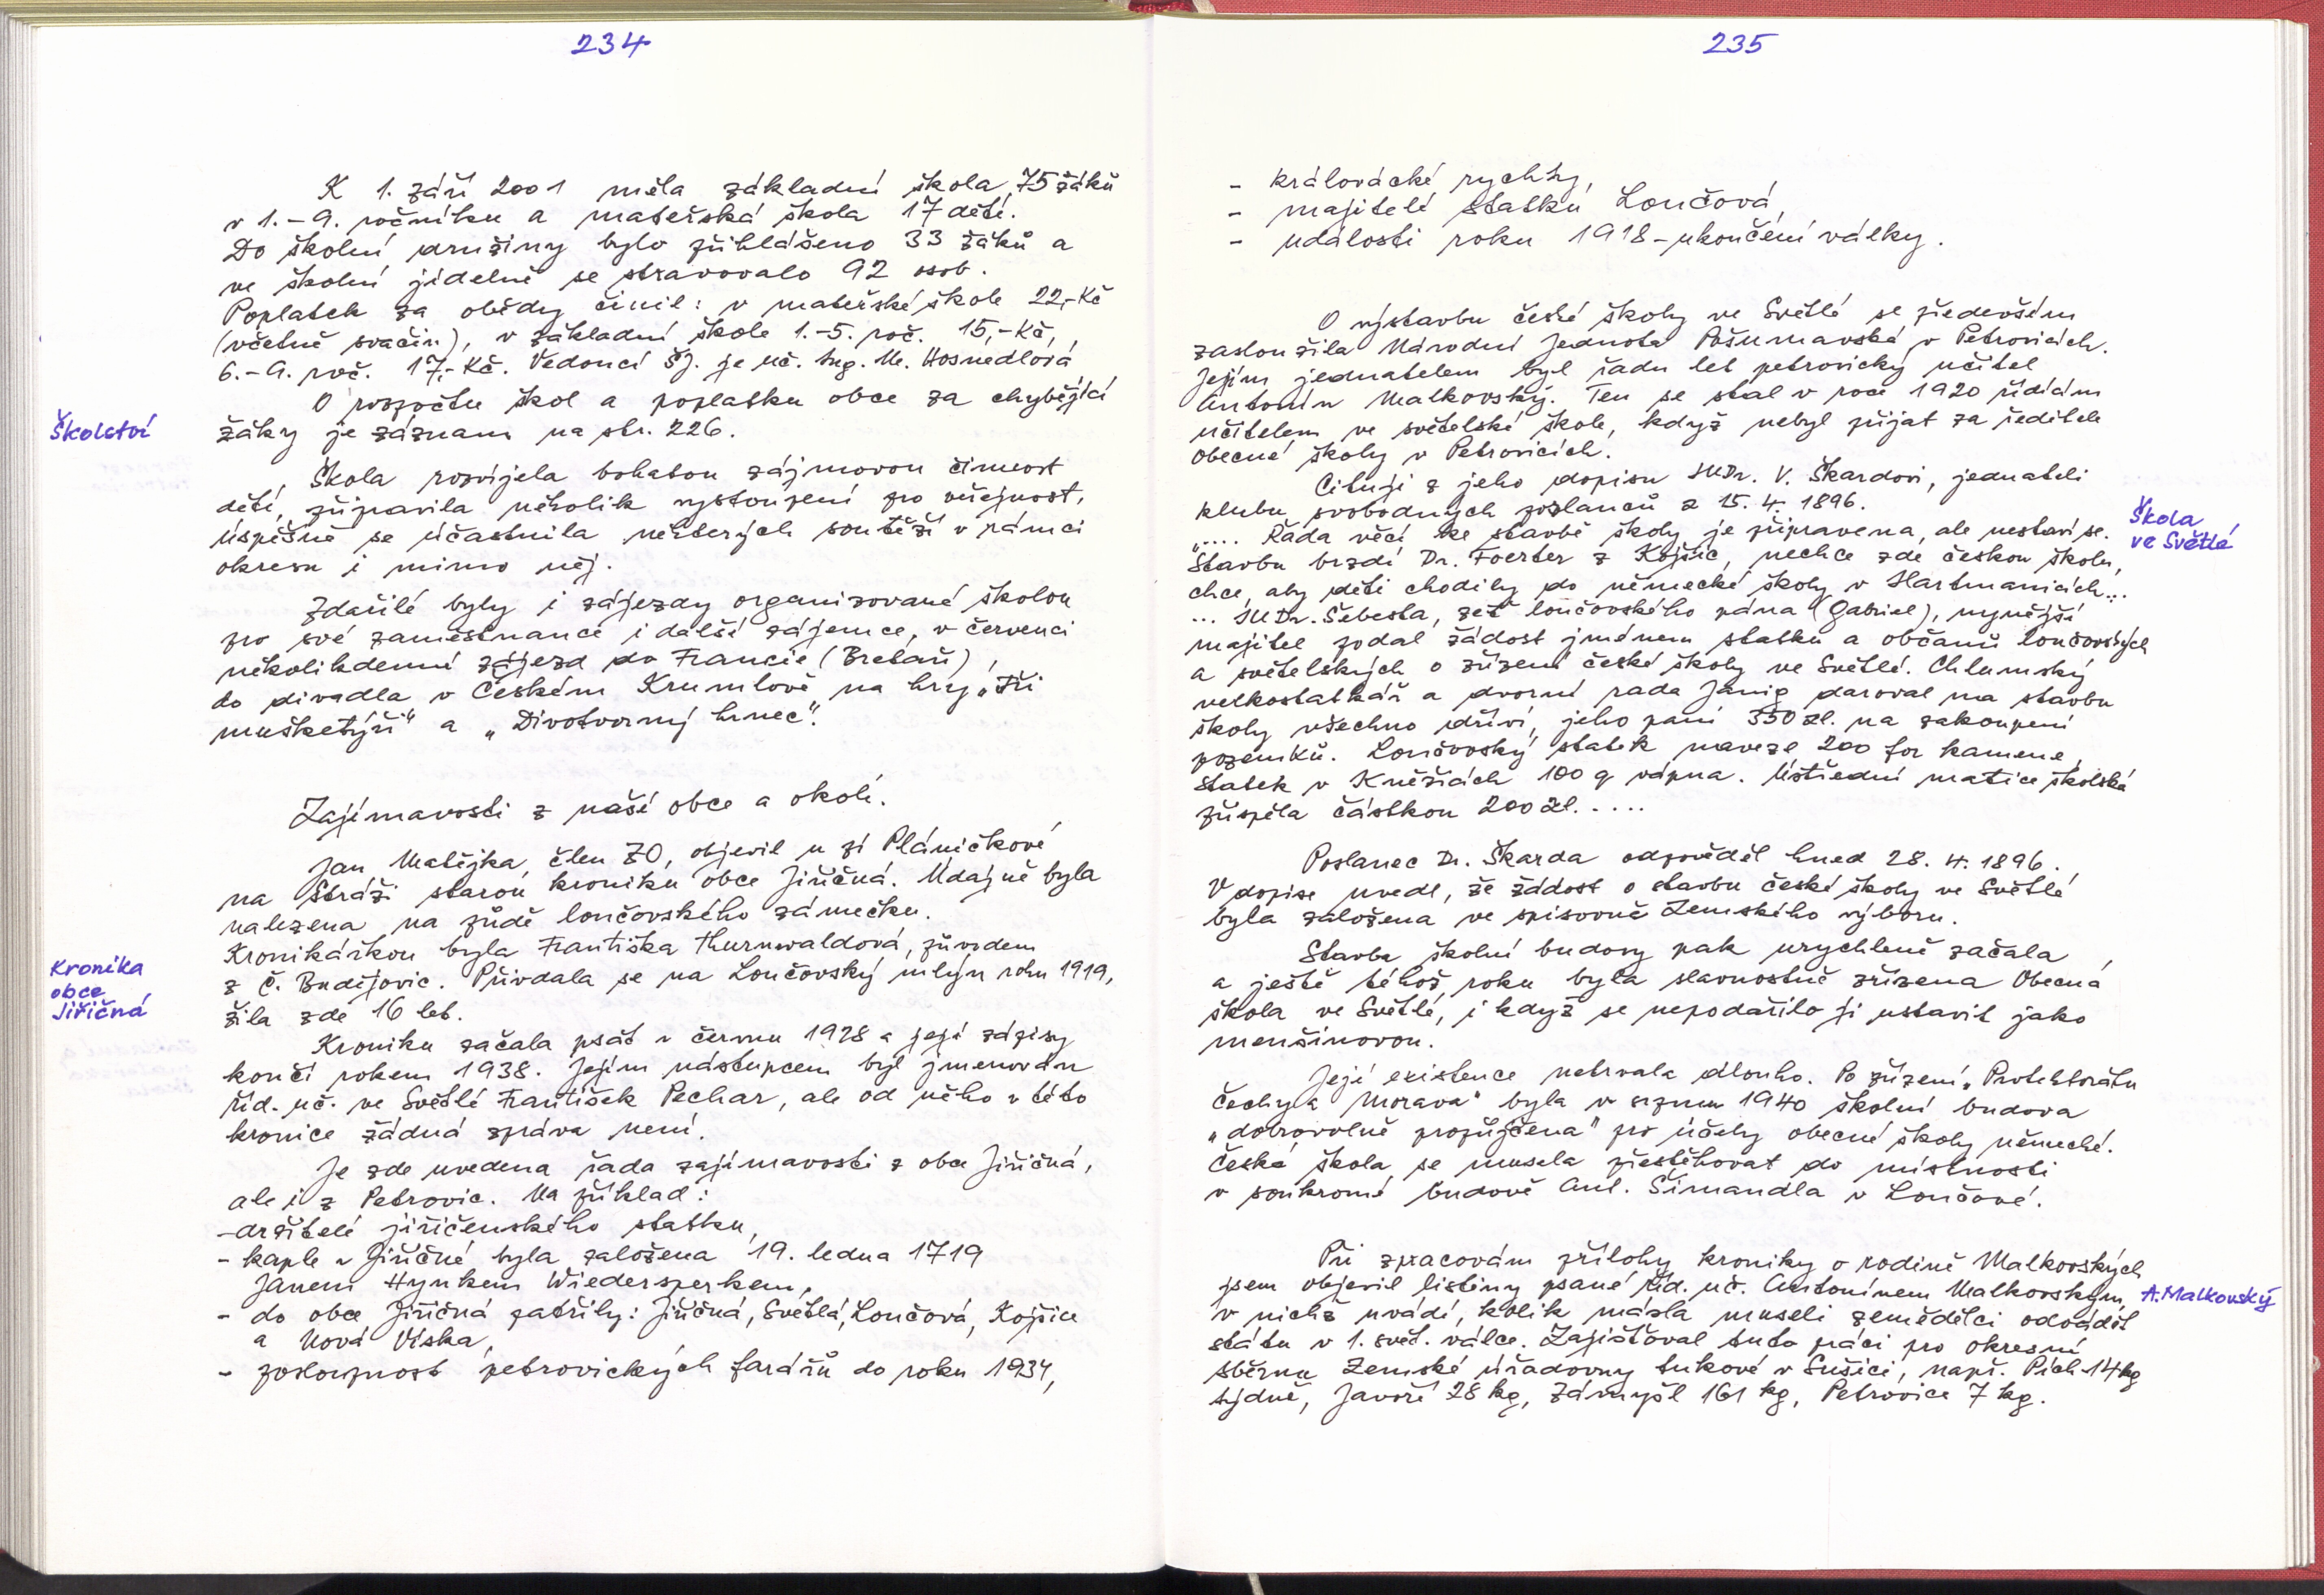 234
K 1. září 2001 měla základní škola 75 žáků
v 1.-9. ročníku a mateřská škola 17 dětí.
Do školní družiny bylo přihlášeno 33 žáků a
ve školní jídelně se stravovalo 92 osob.
Poplatek za obědy činil: v mateřské škole 22,-Kč
(včetně svačin), v základní škole 1.-5. roč. 15,-Kč,
6.-9. roč. 17,-Kč. Vedoucí ŠJ. je uč. Ing. M. Hosnedlová
O rozpočtu škol a poplatku obce za chybějící
Školství
žáky je záznam na str. 226.
Škola rozvíjela bohatou zájmovou činnost
dětí, připravila několik vystoupení pro veřejnost,
úspěšně se účastnila některých soutěží v rámci
okresu i mimo něj.
Zdařilé byly i zájezdy organizované školou
pro své zaměstnance i další zájemce, v červenci
několikdenní zájezd do Francie (Bretaň),
do divadla v Českém Krumlově na hry „Tři
mušketýři" a „Divotvorný hrnec".
Zajímavosti z naší obce a okolí.
Jan Matějka, člen ZO, objevil u pí Pláničkové
na Stráži starou kroniku obce Jiřičná. Údajně byla
nalezena na půdě lončovského zámečku.
Kronikářkou byla Františka Thurnwaldová, původem
Kronika
obce
Jiřičná
z Č. Budějovic. Přivdala se na Lončovský mlýn roku 1919,
žila zde 16 let.
Kroniku začala psát v červnu 1928 a její zápisy
končí rokem 1938. Jejím nástupcem byl jmenován
říd. uč. ve Světlé František Pechar, ale od něho v této
kronice žádná zpráva není.
Je zde uvedena řada zajímavostí z obce Jiřičná,
ale i z Petrovic. Na příklad:
-držitelé jiřičenského statku,
- kaple v Jiřičné byla založena 19. ledna 1719
Janem Hynkem Wiedersperkem,
- do obce Jiřičná patřily: Jiřičná, Světlá, Lončová, Kojšice
a Nová Víska,
- posloupnost petrovických farářů do roku 1934,
235
- královácké rychty,
- majitelé statků Lončová,
- události roku 1918-ukončení války.
O výstavbu české školy ve Světlé se především
zasloužila Národní Jednota Pošumavská v Petrovicích.
Jejím jednatelem byl řadu let petrovický učitel
Antonín Malkovský. Ten se stal v roce 1920 řídícím
učitelem ve světelské škole, když nebyl přijat za ředitele
obecné školy v Petrovicích.
Cituji z jeho dopisu JUDr. V. Škardovi, jednateli
klubu svobodných poslanců z 15. 4. 1896.
Škola
ve Světlé
„.... Řada věcí ke stavbě školy je připravena, ale nestaví se.
Stavbu brzdí Dr. Foerter z Kojšic, nechce zde českou školu,
chce, aby děti chodily do německé školy v Hartmanicích...
... JUDr. Šebesta, zeť lončovského pána (Gabriel), nynější
majitel podal žádost jménem statku a občanů lončovských
a světelských o zřízení české školy ve Světlé. Chlumský
velkostatkář a dvorní rada Janig daroval na stavbu
školy všechno dříví, jeho paní 350 zl. na zakoupení
pozemků. Lončovský statek naveze 200 for kamene,
statek v Kněžicích 100 q vápna. Ústřední matice školská
přispěla částkou 200 zl.....
Poslanec Dr. Škarda odpověděl hned 28. 4. 1896.
V dopise uvedl, že žádost o stavbu české školy ve Světlé
byla založena ve spisovně Zemského výboru.
Stavba školní budovy pak urychleně začala
a ještě téhož roku byla slavnostně zřízena Obecná
škola ve Světlé, i když se nepodařilo ji ustavit jako
menšinovou.
Její existence netrvala dlouho. Po zřízení „Protektorátu
Čechy a Morava" byla v srpnu 1940 školní budova
„dobrovolně propůjčena" pro účely obecné školy německé.
Česká škola se musela přestěhovat do místnosti
v soukromé budově Ant. Šimandla v Lončové.
Při zpracování přílohy kroniky o rodině Malkovských
jsem objevil listiny psané říd. uč. Antonínem Malkovským,
A.Malkovský
v nichž uvádí, kolik másla museli zemědělci odvádět
státu v 1. svět. válce. Zajišťoval tuto práci pro okresní
sběrnu Zemské úřadovny tukové v Sušici, např. Pích-14kg
týdně, Javoří 28 kg, Zámyšl 161 kg, Petrovice 7 kg.